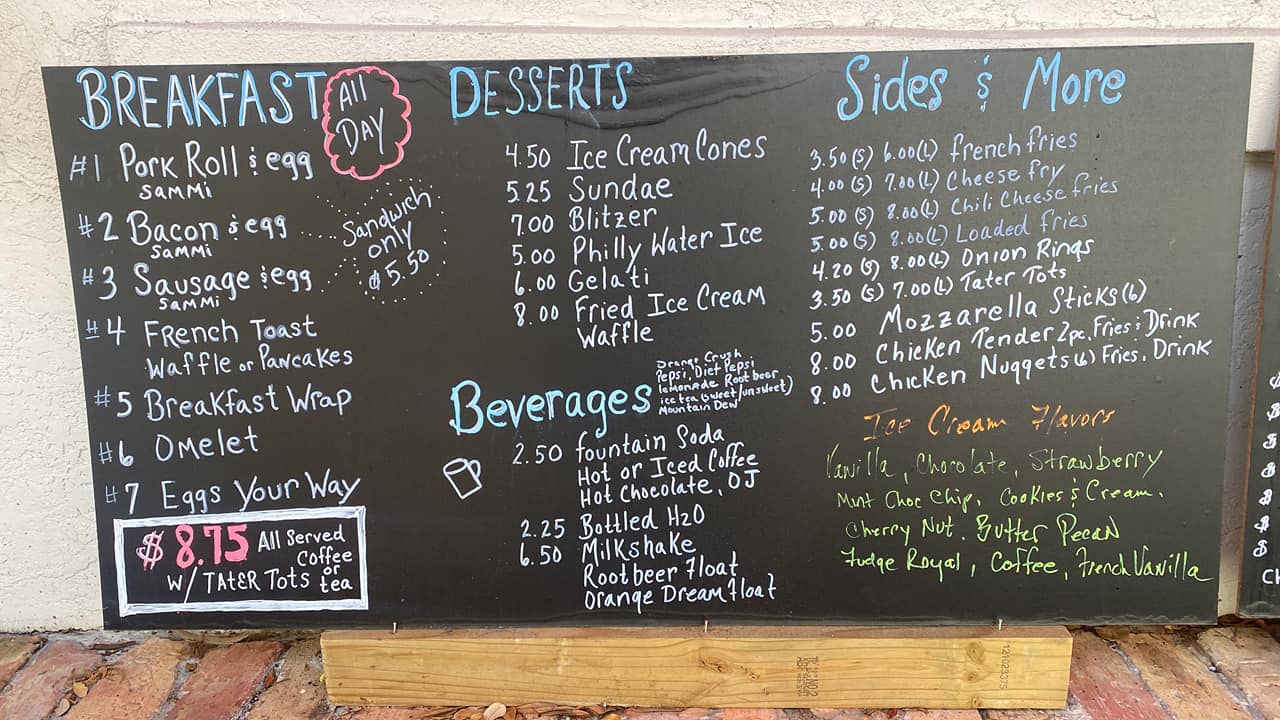 BREAKFAST All DAY
#1 Pork Roll & egg
SAMMi
#2 Bacon & egg
SAMMi
#3 Sausage & egg
SAMMi
Sandwich
only
$5.50
#4 French Toast
Waffle or Pancakes
#5 Breakfast Wrap
#6 Omelet
#7 Eggs Your Way
$8.75 All Served
Coffee
or
tea
W/ TATER Tots
DESSERTS
4.50 Ice Cream Cones
5.25 Sundae
7.00 Blitzer
5.00 Philly Water Ice
6.00 Gelati
8.00 Fried Ice Cream
Waffle
Beverages
Orange Crush
Pepsi, Diet Pepsi
lemonade Root beer
ice tea (sweet/unsweet)
Mountain Dew
2.50 fountain Soda
Hot or Iced Coffee
Hot Chocolate, OJ
2.25 Bottled H2O
6.50 Milkshake
Rootbeer Float
Orange Dreamfloat
Sides & More
3.50 (S) 6.00 (L) french fries
4.00 (S) 7.00 (L) Cheese fry
5.00 (S) 8.00 (L) Chili Cheese fries
5.00 (S) 8.00 (L) Loaded fries
4.20 (S) 8.00 (L) Onion Rings
3.50 (S) 7.00 (L) Tater Tots
5.00 Mozzarella Sticks (6)
8.00 Chicken Tender 2pc, Fries & Drink
8.00 Chicken Nuggets (6) Fries, Drink
Ice Cream Flavors
Vanilla, Chocolate, Strawberry
Mint Choc Chip, Cookies & Cream,
Cherry Nut. Butter Pecan
Fudge Royal, Coffee, French Vanilla
12023375